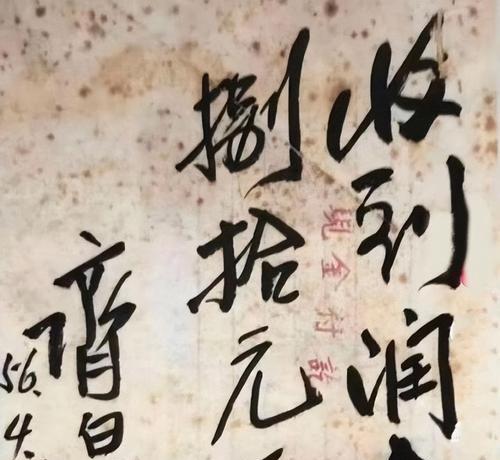 收到润
捌拾元
现金付讫
齐白
56.4.